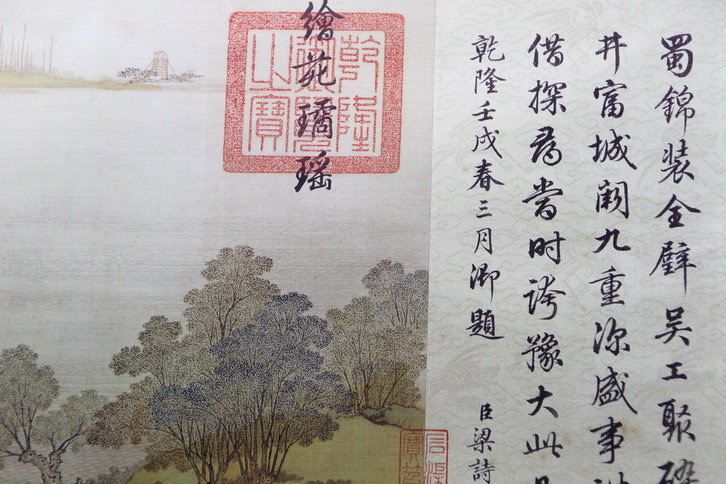 蜀錦裝全璧吳工聚碎
井富城闕九重深盛事
借探尋當時誇豫大此
乾隆壬戌春三月御題
臣梁詩
繪苑璚瑤
乾隆御覽之寶